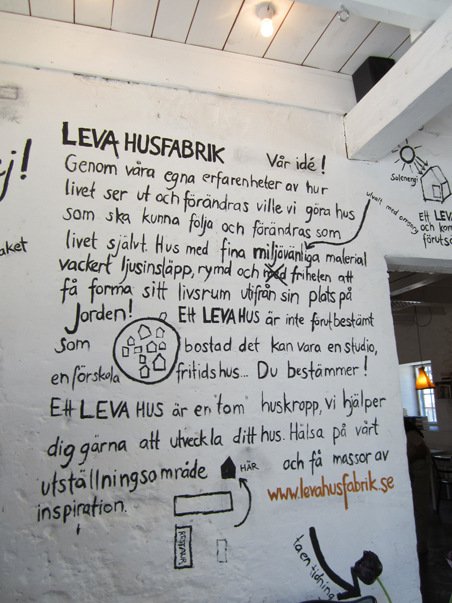 LEVA HUSFABRIK Vår idé!
Genom våra egna erfarenheter av hur
livet ser ut och förändras ville vi göra hus
som ska kunna följa och förändras som
livet självt. Hus med fina miljövänliga material
vackert ljusinsläpp, rymd och med friheten att
få forma sitt livsrum utifrån sin plats på
Jorden! Ett LEVA HUS är inte förutbestämt
som bostad det kan vara en studio,
en förskola fritidshus... Du bestämmer!
Ett LEVA HUS är en "tom" huskropp, vi hjälper
dig gärna att utveckla ditt hus. Hälsa på vårt
utställningsområde HÄR och få massor av
inspiration. www.levahusfabrik.se
ta en tidning
Solenergi
utvalt med omsorg
Ett LEVA
och kom
förutsä
j!
aket